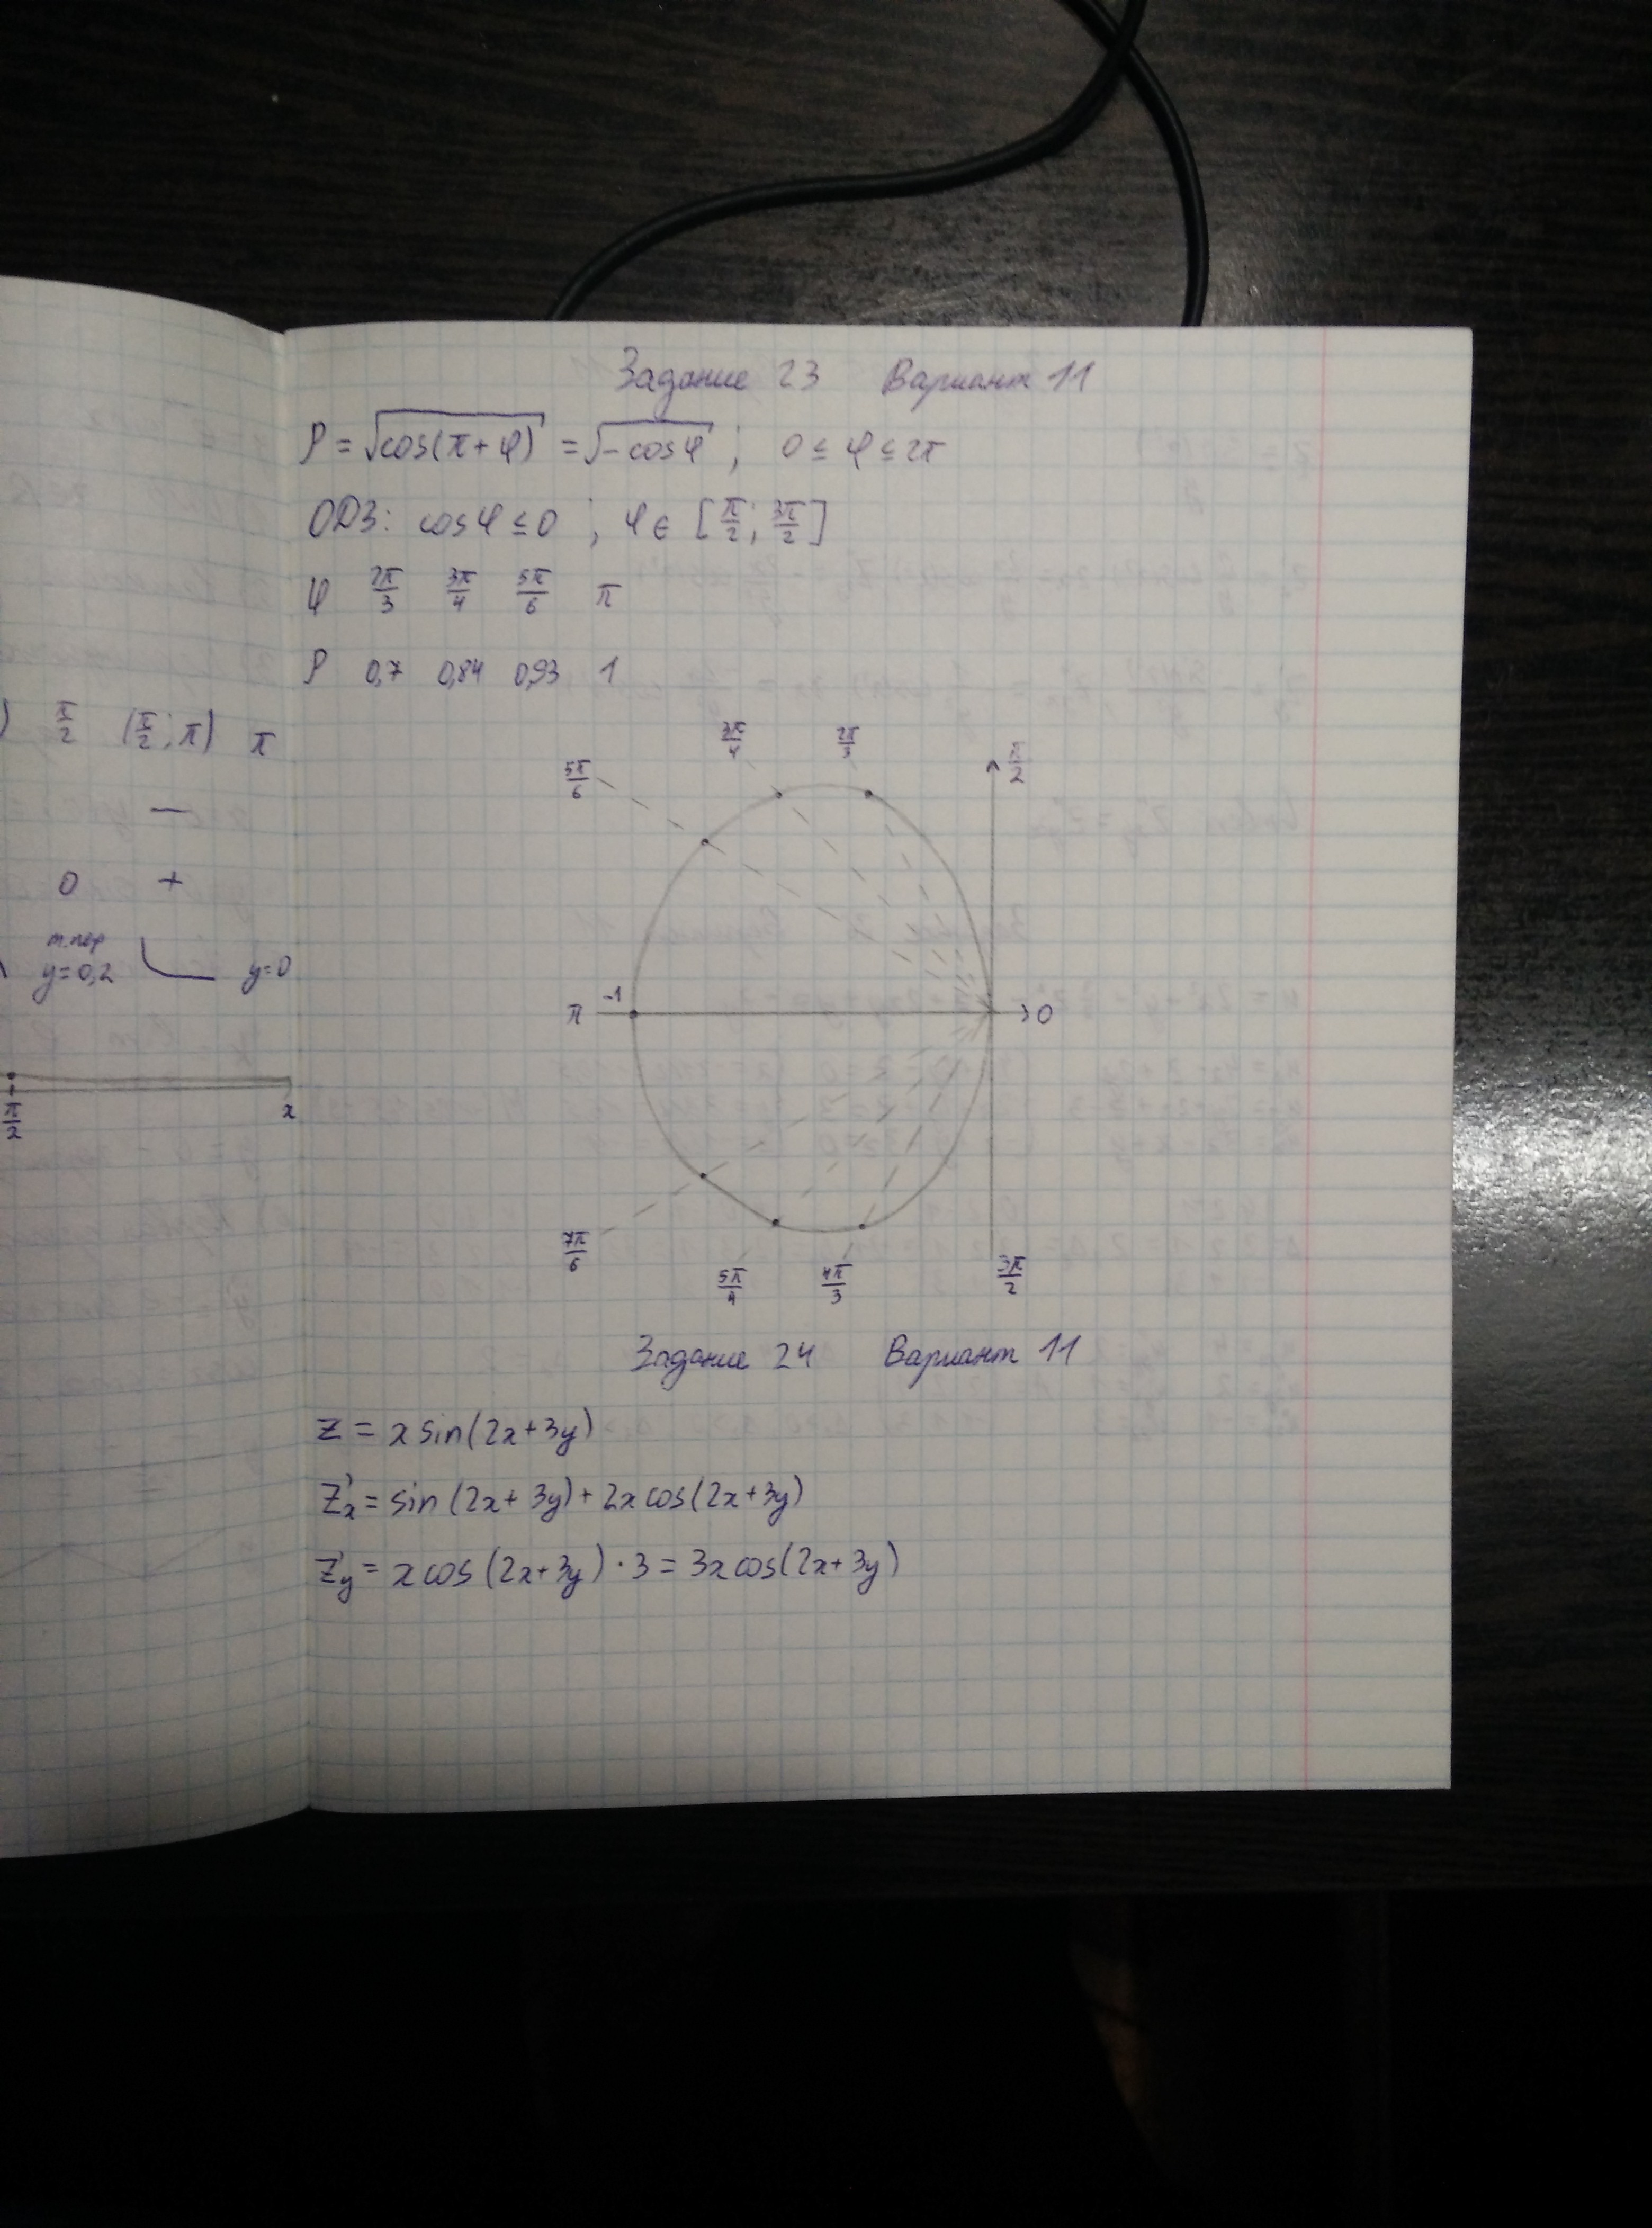 π/2 (π/2; π) π
—
0 +
т.пер
y=0,2 y=0
π/2 x
Задание 23 Вариант 11
ρ = √cos(π+φ) = √-cosφ ; 0 ≤ φ ≤ 2π
ОДЗ: cosφ ≤ 0 ; φ ∈ [π/2; 3π/2]
φ 2π/3 3π/4 5π/6 π
ρ 0,7 0,84 0,93 1
5π/6 3π/4 2π/3 π/2
π -1 0
7π/6 5π/4 4π/3 3π/2
Задание 24 Вариант 11
z = x sin(2x+3y)
z'x = sin(2x+3y)+2x cos(2x+3y)
z'y = x cos(2x+3y)·3 = 3x cos(2x+3y)